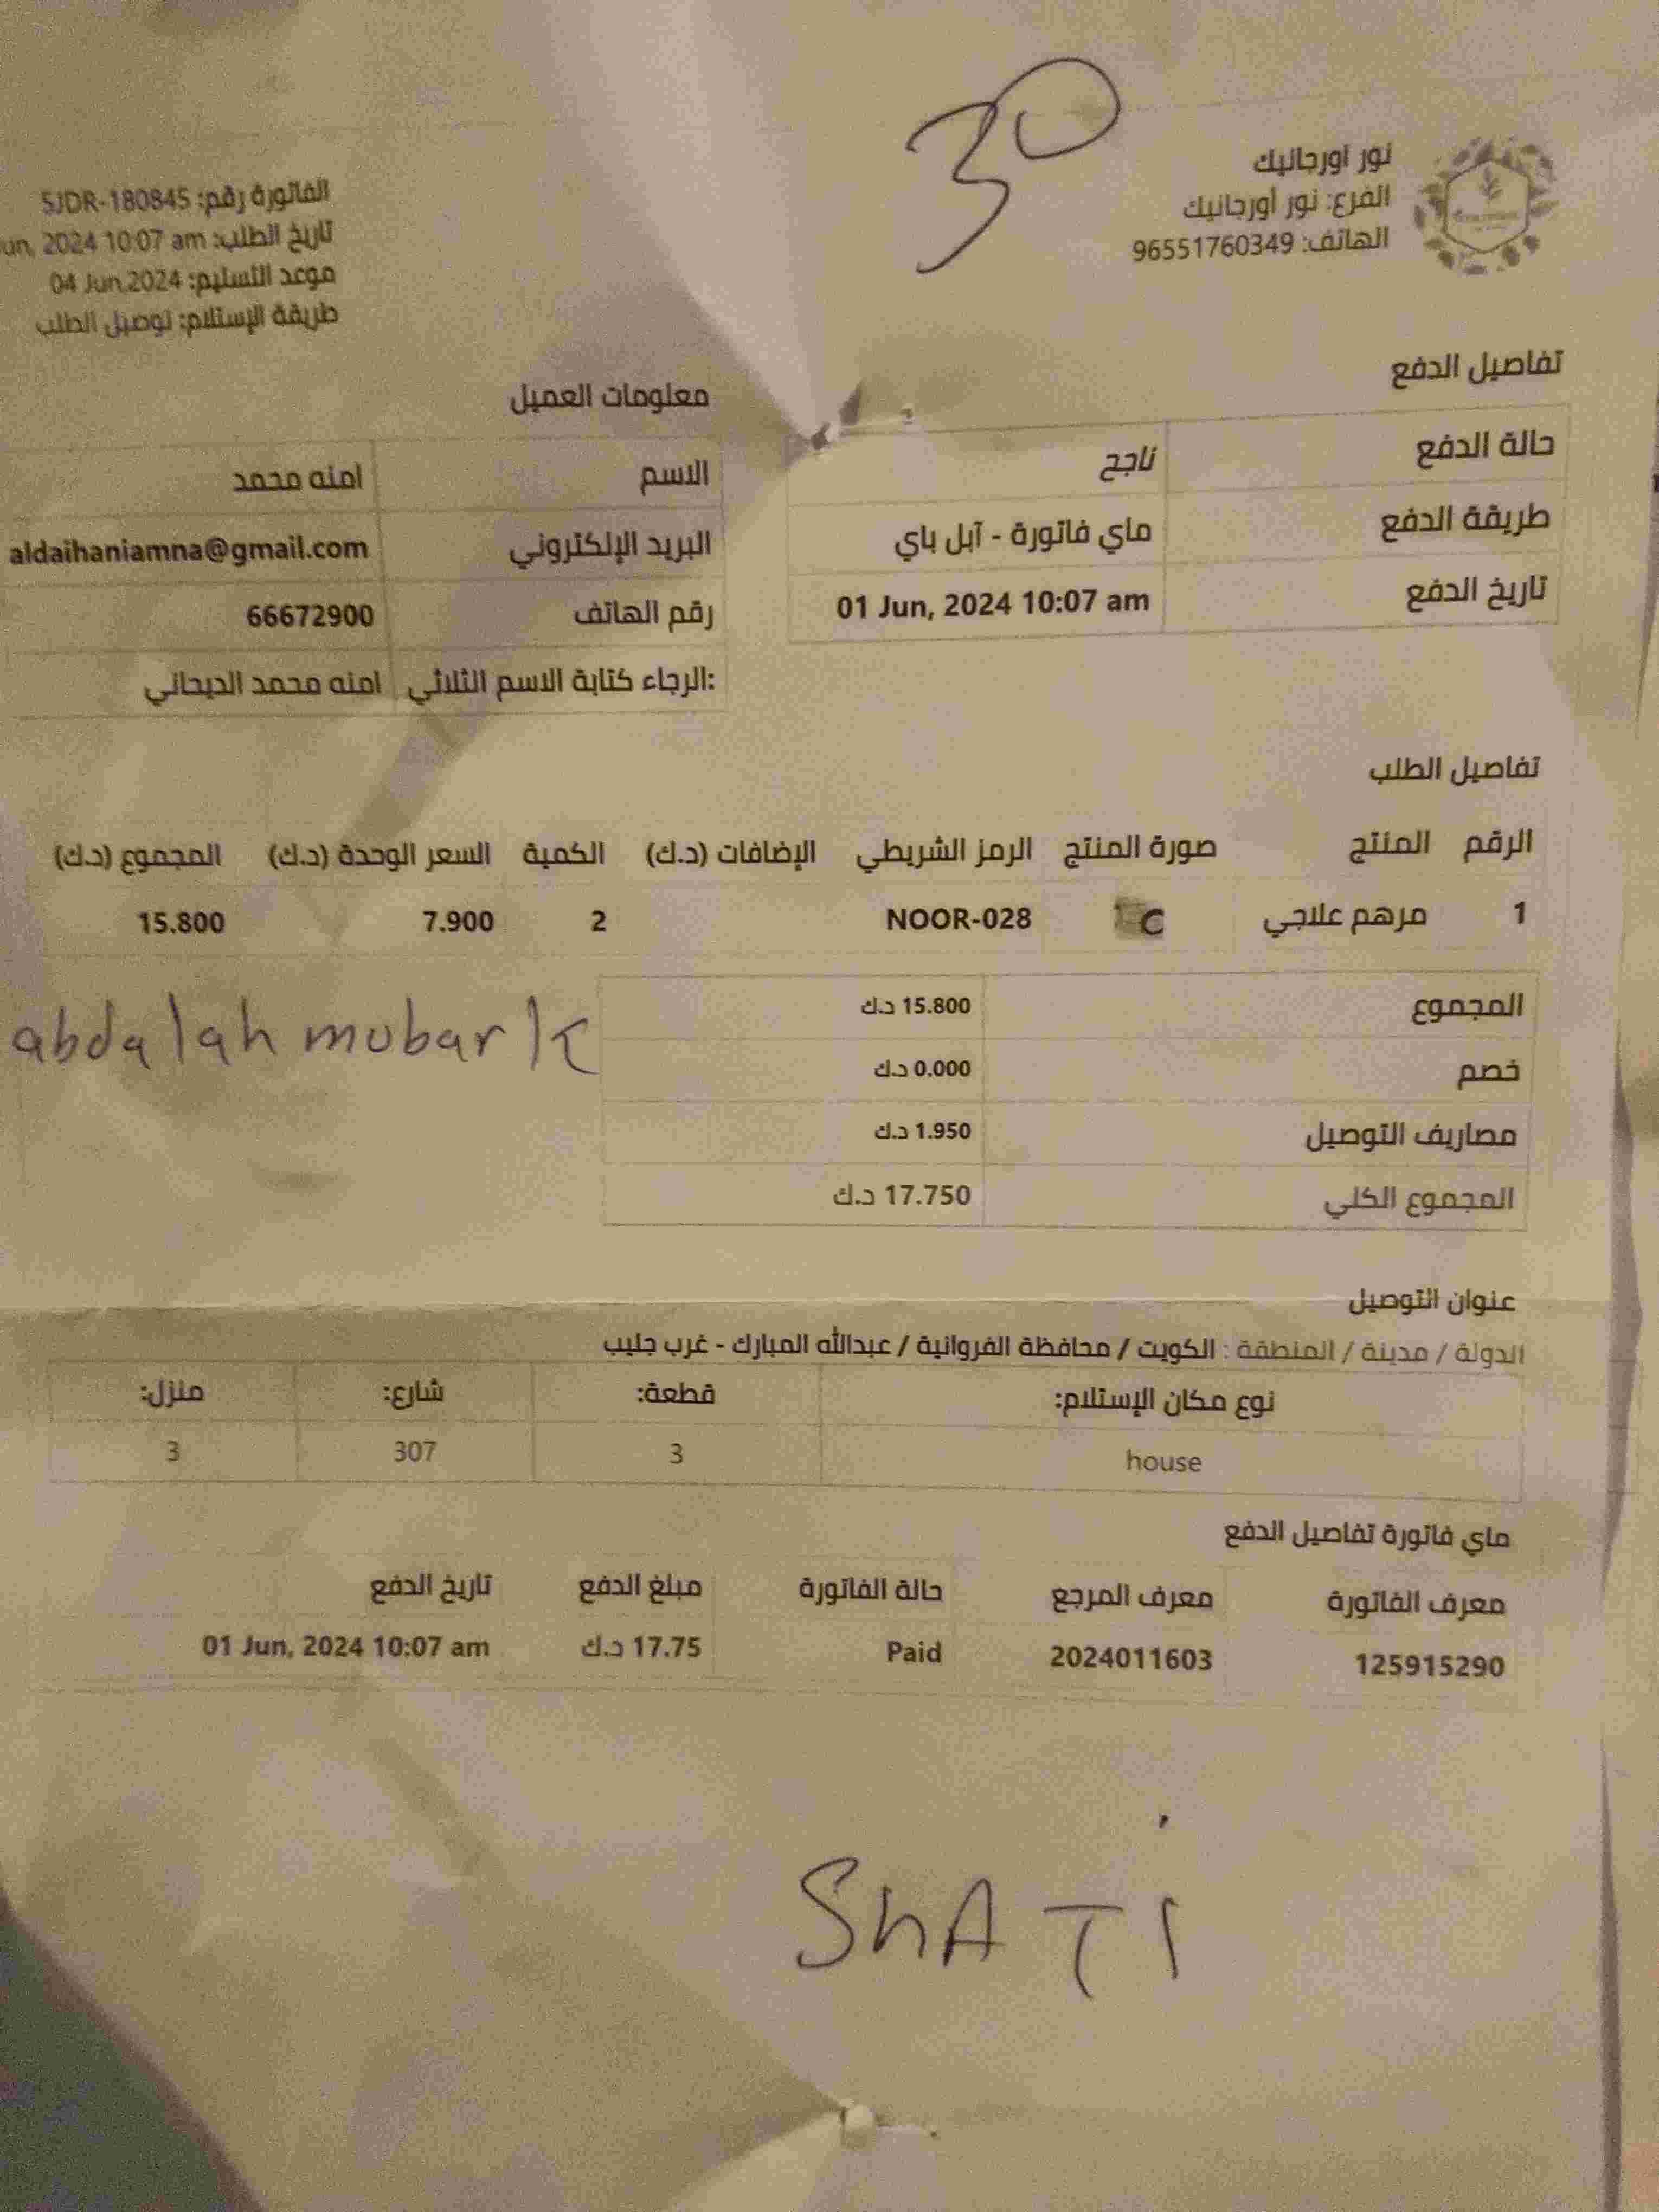 30
نور اورجانيك
الفرع: نور أورجانيك
الهاتف: 96551760349
الفاتورة رقم: 5JDR-180845
تاريخ الطلب: un, 2024 10:07 am
موعد التسليم: 04 Jun,2024
طريقة الإستلام: توصيل الطلب
تفاصيل الدفع
حالة الدفع ناجح
طريقة الدفع ماي فاتورة - آبل باي
تاريخ الدفع 01 Jun, 2024 10:07 am
معلومات العميل
الاسم امنه محمد
البريد الإلكتروني aldaihaniamna@gmail.com
رقم الهاتف 66672900
الرجاء كتابة الاسم الثلاثي: امنه محمد الديحاني
تفاصيل الطلب
الرقم المنتج صورة المنتج الرمز الشريطي الإضافات (د.ك) الكمية السعر الوحدة (د.ك) المجموع (د.ك)
1 مرهم علاجي NOOR-028 2 7.900 15.800
المجموع 15.800 د.ك
خصم 0.000 د.ك
مصاريف التوصيل 1.950 د.ك
المجموع الكلي 17.750 د.ك
abdalah mubark
عنوان التوصيل
الدولة / مدينة / المنطقة : الكويت / محافظة الفروانية / عبدالله المبارك - غرب جليب
نوع مكان الإستلام: قطعة: شارع: منزل:
house 3 307 3
ماي فاتورة تفاصيل الدفع
معرف الفاتورة معرف المرجع حالة الفاتورة مبلغ الدفع تاريخ الدفع
125915290 2024011603 Paid 17.75 د.ك 01 Jun, 2024 10:07 am
ShATi